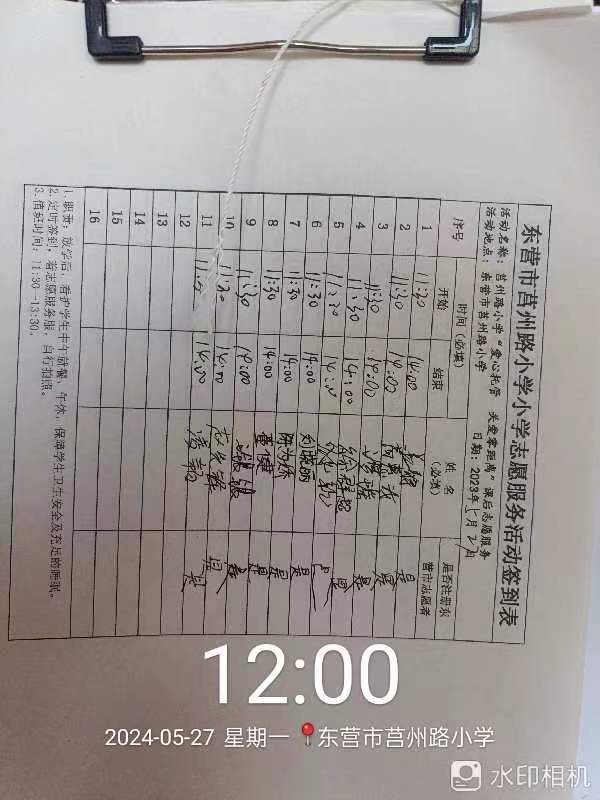 东营市莒州路小学小学志愿服务活动签到表
活动名称：莒州路小学"爱心托管 关爱零距离"课后志愿服务
活动地点：东营市莒州路小学 日期：2023年5月27日
序号 时间（必填） 姓名（必填） 是否注册东营市志愿者
开始 结束
1 11:30 14:00 是
2 11:30 14:00 是
3 11:30 14:00 是
4 11:30 14:00 是
5 11:30 14:00
6 11:30 14:00 刘晓丽
7 11:30 14:00 是
8 11:30 14:00 董健 是
9 11:30 14:00 是
10 11:30 14:00 是
11 11:30 14:00 是
12
13
14
15
16
1. 职责：放学后，看护学生中午就餐、午休，保障学生卫生安全及充足的睡眠。
2. 定时签到，着志愿服务服，自行拍照。
3. 值班时间：11:30-13:30。
12:00
2024-05-27 星期一 东营市莒州路小学
水印相机